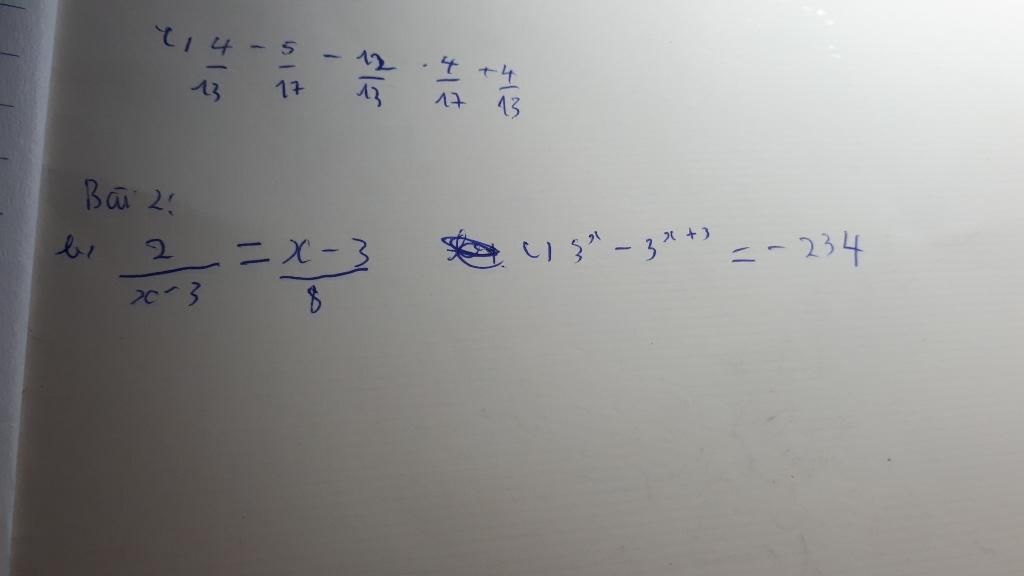 c, 4/13 - 5/17 - 12/13 . 4/17 + 4/13
Bài 2:
b, 2/(x-3) = (x-3)/8 c, 3^x - 3^(x+3) = -234